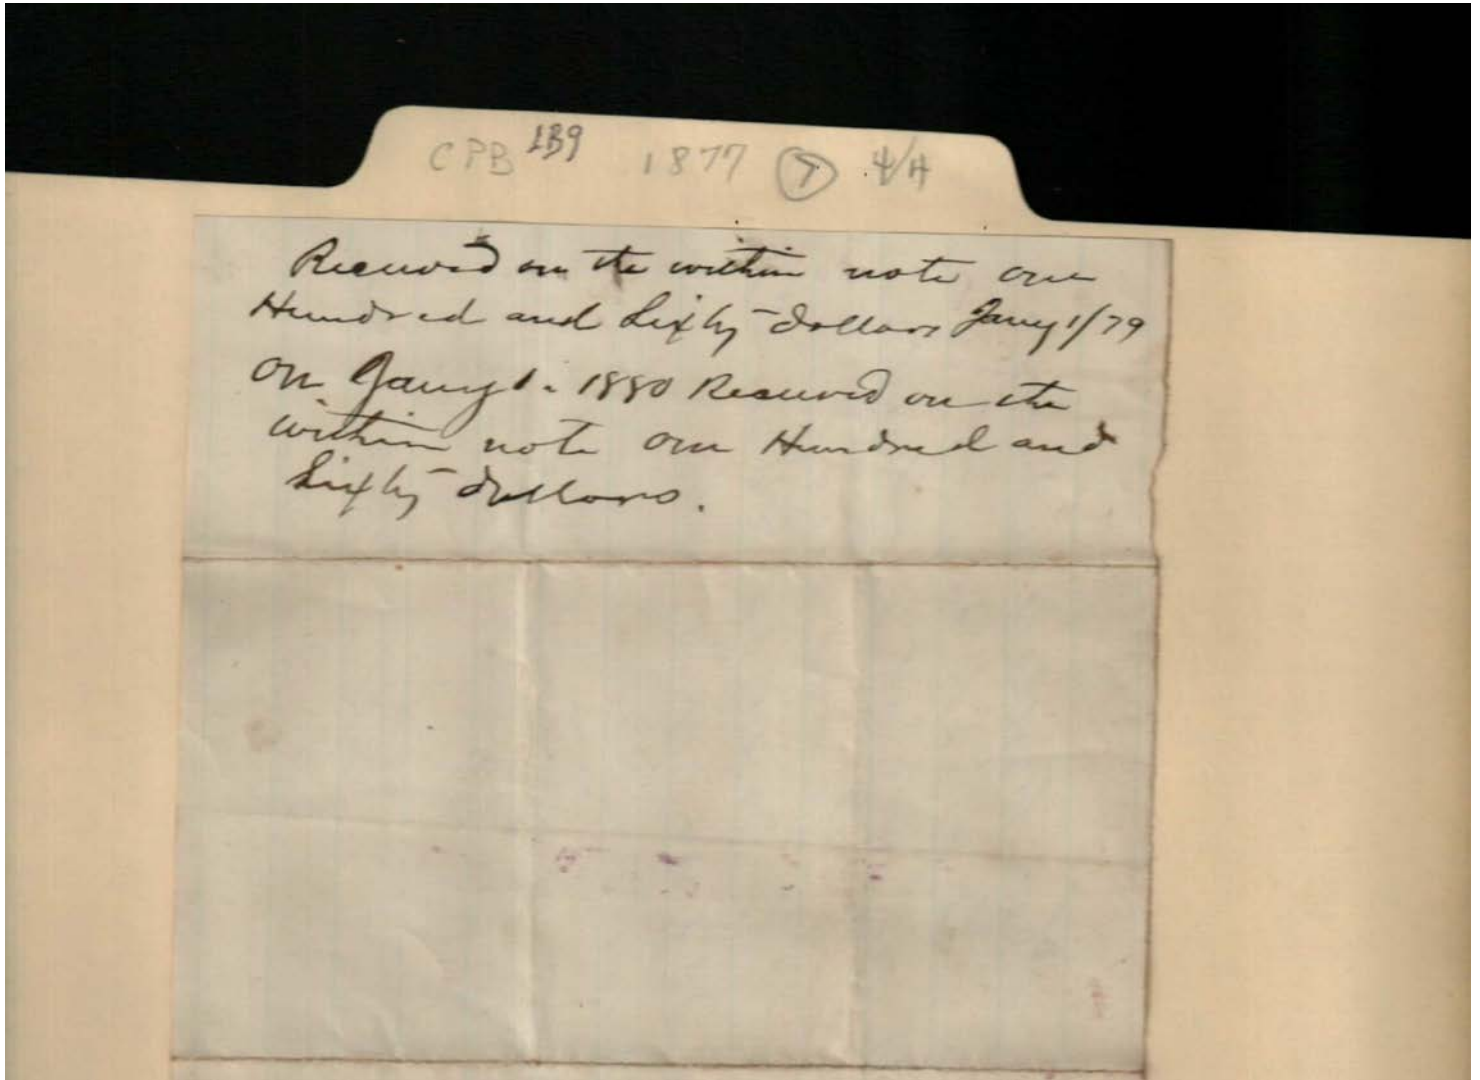 CPB LB9 1877 T 4/4
Received on the within note one
Hundred and Sixty dollars Jany 1/79
on Jany 1. 1880 Received on the
within note one Hundred and
Sixty dollars.